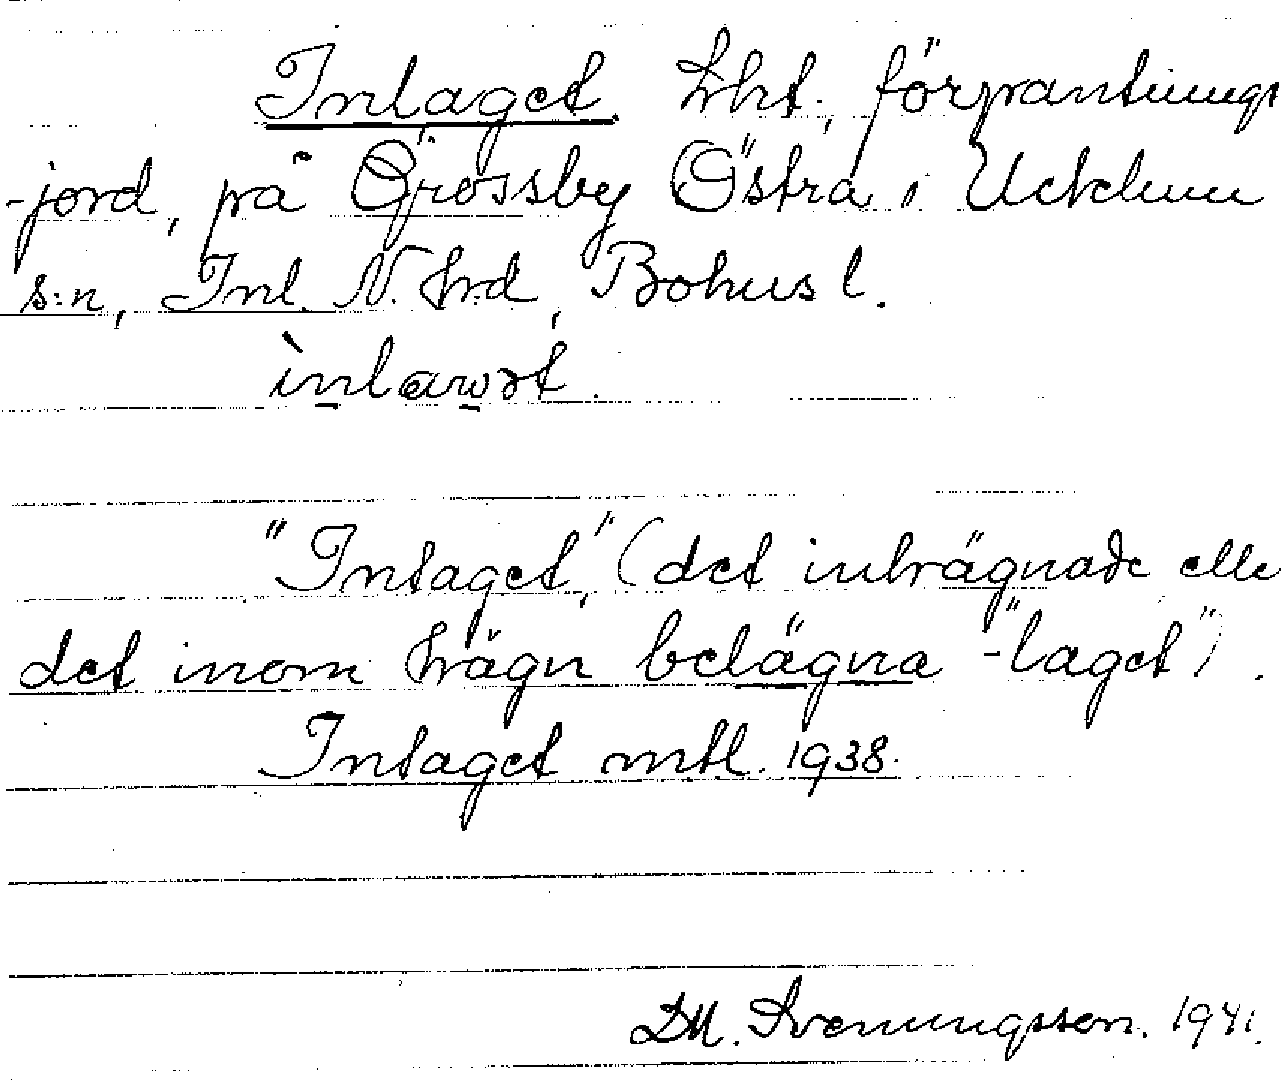 Inlaget. Lht, förpantnings
-jord, på Grössby Östra i Ucklum
s:n, Inl. N. hrd, Bohus l.
ìnlawət.
"Intaget," (det inhägnade elle
det inom hägn belägna -"laget").
Intaget mtl. 1938.
DM. Svenungsson. 1941.